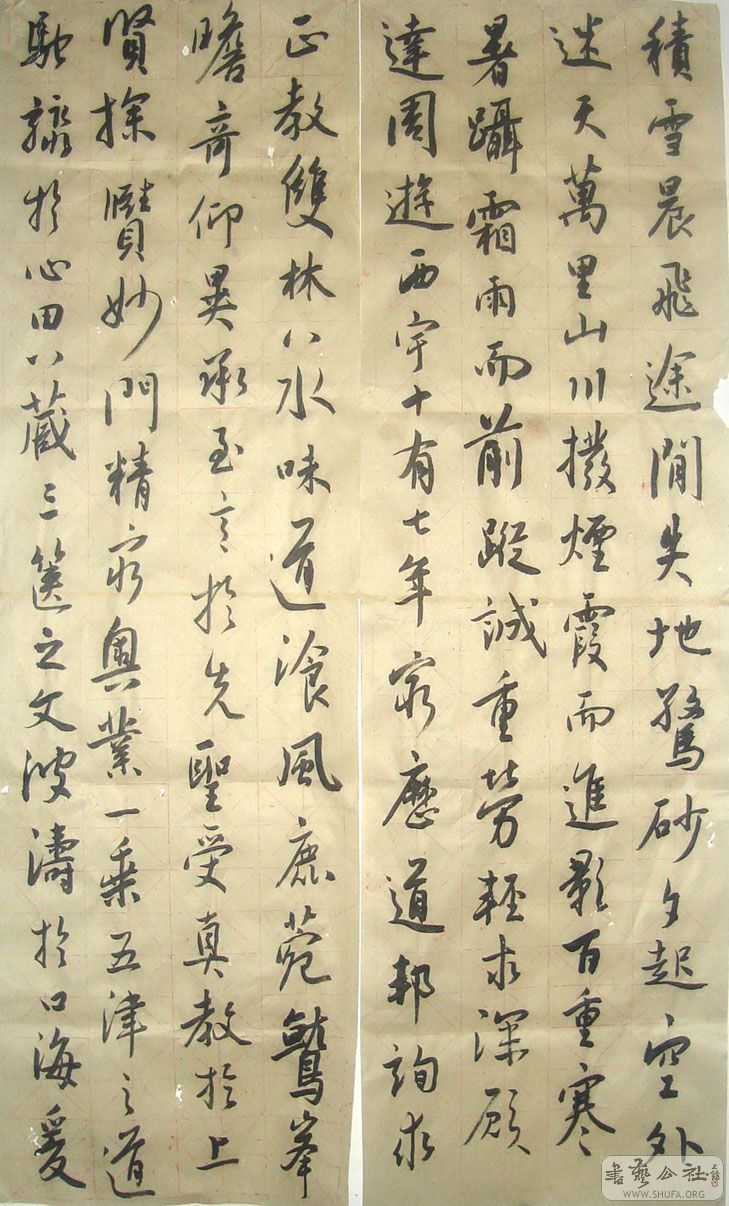 積雪晨飛途閒失地驚砂夕起空外
迷天萬里山川撥煙霞而進影百重寒
暑躡霜雨而前蹤誠重勞輕求深願
達周遊西宇十有七年窮歷道邦詢求
正教雙林八水味道飡風鹿菀鷲峯
瞻奇仰異承至言於先聖受真教於上
賢探賾妙門精窮奧業一乘五律之道
馳驟於心田八藏三篋之文波濤於口海爰
書藝公社
WWW.SHUFA.ORG